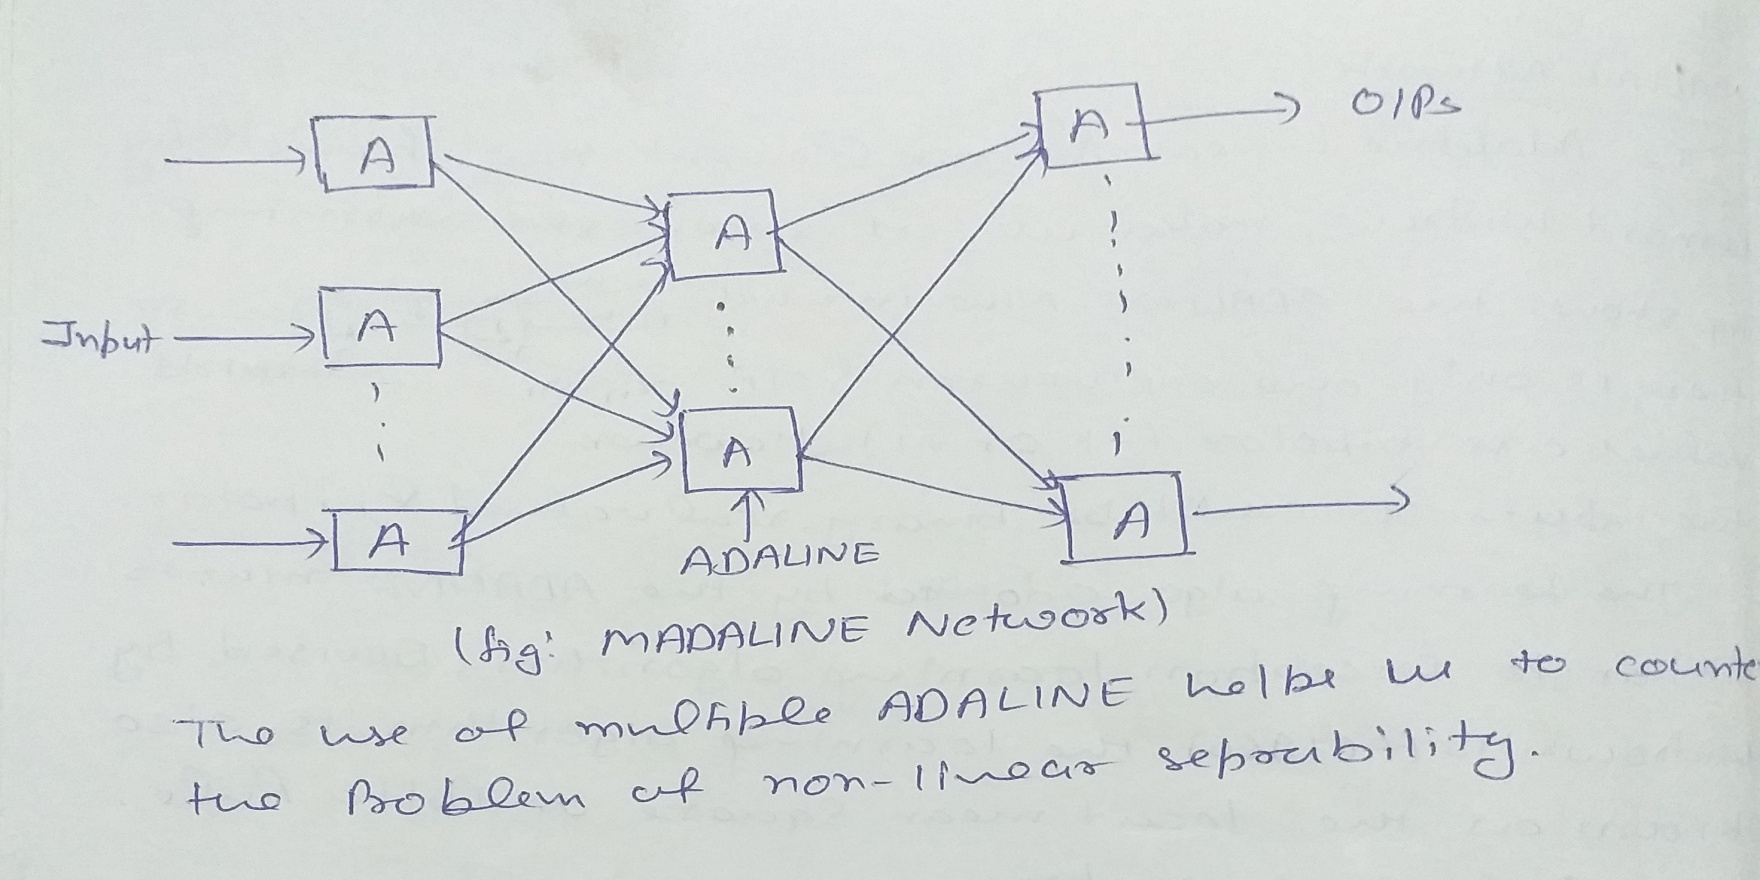 A
A
O/Ps
A
Input
A
A
A
A
ADALINE
(fig: MADALINE Network)
The use of multiple ADALINE helps us to counte
the Problem of non-linear seprability.